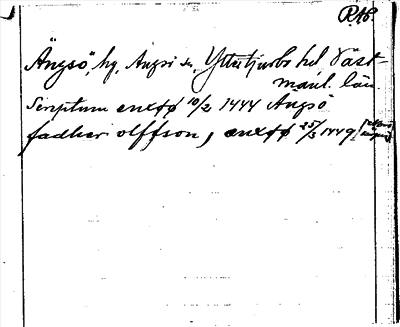 RAp.
Ängsö, hg, Ängsö sn, Yttertjurbo hd Väst-
manl. län.
Scriptum enxöö 10/2 1444 Angsö
fadher olffson, enxöö 25/3 1449